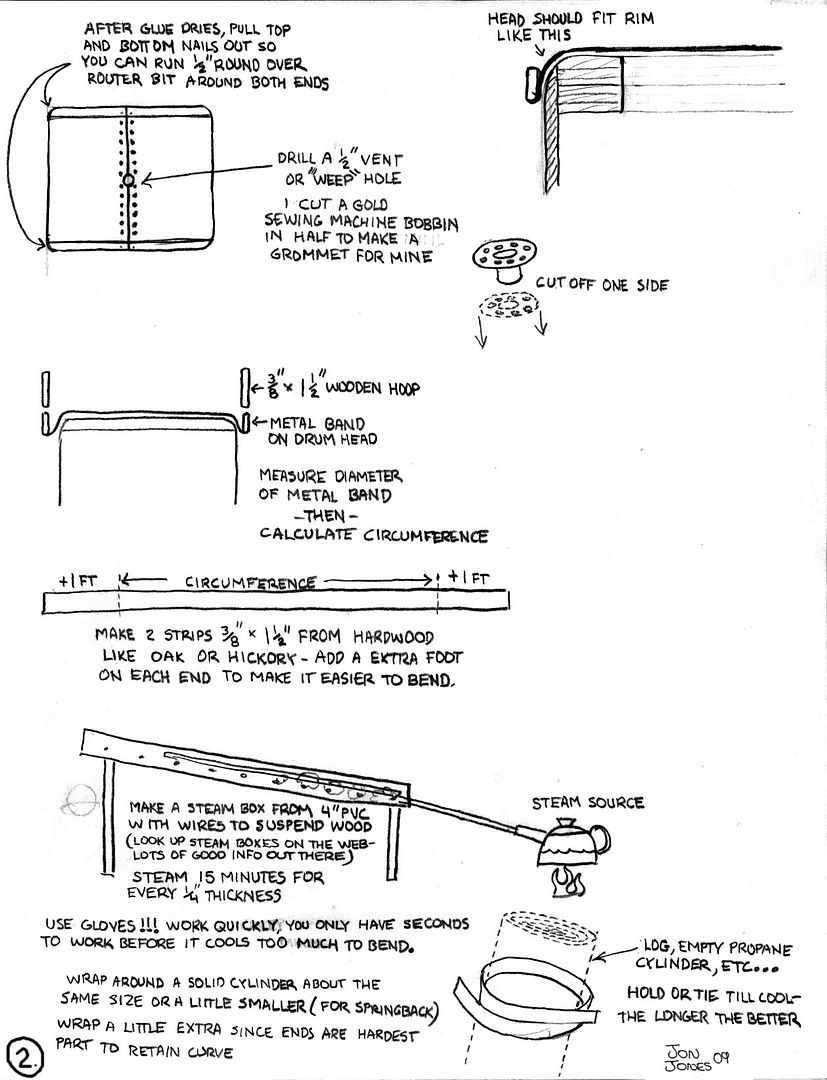 AFTER GLUE DRIES, PULL TOP
AND BOTTOM NAILS OUT SO
YOU CAN RUN 1/2" ROUND OVER
ROUTER BIT AROUND BOTH ENDS
HEAD SHOULD FIT RIM
LIKE THIS
DRILL A 1/2" VENT
OR "WEEP" HOLE
I CUT A GOLD
SEWING MACHINE BOBBIN
IN HALF TO MAKE A
GROMMET FOR MINE
CUT OFF ONE SIDE
3/8" × 1 1/2" WOODEN HOOP
METAL BAND
ON DRUM HEAD
MEASURE DIAMETER
OF METAL BAND
-THEN-
CALCULATE CIRCUMFERENCE
+1 FT
CIRCUMFERENCE
+1 FT
MAKE 2 STRIPS 3/8" × 1 1/2" FROM HARDWOOD
LIKE OAK OR HICKORY - ADD A EXTRA FOOT
ON EACH END TO MAKE IT EASIER TO BEND.
MAKE A STEAM BOX FROM 4" PVC
WITH WIRES TO SUSPEND WOOD
(LOOK UP STEAM BOXES ON THE WEB-
LOTS OF GOOD INFO OUT THERE)
STEAM 15 MINUTES FOR
EVERY 1/4" THICKNESS
STEAM SOURCE
USE GLOVES!!! WORK QUICKLY, YOU ONLY HAVE SECONDS
TO WORK BEFORE IT COOLS TOO MUCH TO BEND.
WRAP AROUND A SOLID CYLINDER ABOUT THE
SAME SIZE OR A LITTLE SMALLER (FOR SPRINGBACK)
WRAP A LITTLE EXTRA SINCE ENDS ARE HARDEST
PART TO RETAIN CURVE
LOG, EMPTY PROPANE
CYLINDER, ETC...
HOLD OR TIE TILL COOL-
THE LONGER THE BETTER
2.
JON
JONES 09